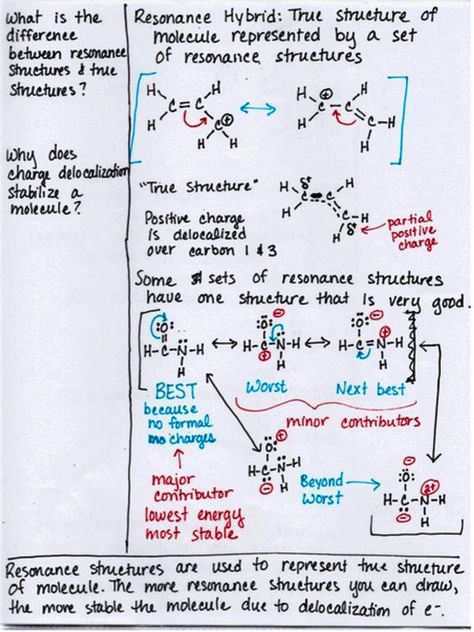 What is the
difference
between resonance
structures & true
structures?
Why does
charge delocalization
stabilize a
molecule?
Resonance Hybrid: True structure of
molecule represented by a set
of resonance structures
H H
C=C
H C⊕-H
H
H ⊕ H
C-C
H C-H
H
"True Structure"
Positive charge
is delocalized
over carbon 1 & 3
H δ+ H
C C
H C-H
H δ+
partial
positive
charge
Some sets of resonance structures
have one structure that is very good.
:O:
H-C-N-H
H
:O: ⊖
H-C-N-H
⊕ H
:O: ⊖
H-C=N-H
⊕
H
BEST
because
no formal
charges
Worst
Next best
minor contributors
major
contributor
lowest energy
most stable
:O ⊕
H-C-N-H
⊖ H
Beyond
worst
:O: ⊖
H-C-N-H
2+
⊖ H
Resonance structures are used to represent true structure
of molecule. The more resonance structures you can draw,
the more stable the molecule due to delocalization of e-.